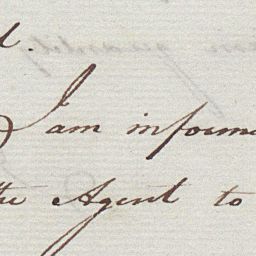 I am inform
the Agent to